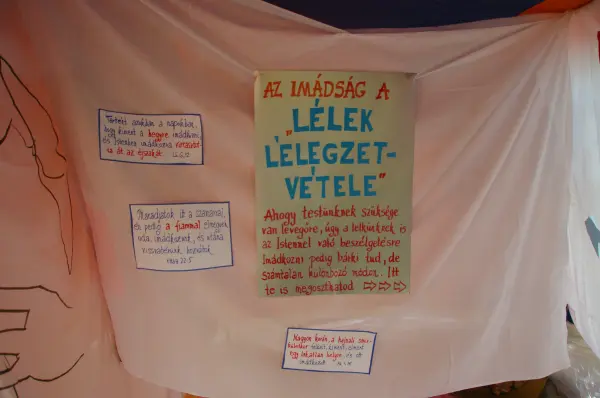 Történt azokban a napokban,
hogy kiment a hegyre imádkozni,
és Istenhez imádkozva virrasztot-
ta át az éjszakát.
Maradjatok itt a szamárral,
én pedig a fiammal elmegyek
oda, imádkozunk, és utána
visszatérünk hozzátok
1Móz 22:5
AZ IMÁDSÁG A
„LÉLEK
LÉLEGZET-
VÉTELE"
Ahogy testünknek szüksége
van levegőre, úgy a lelkünknek is
az Istennel való beszélgetésre
Imádkozni pedig bárki tud, de
számtalan különböző módon. Itt
te is megoszthatod ⇨⇨⇨
Nagyon korán, a hajnali szür-
kületkor felkelt, kiment, elment
egy lakatlan helyre, és ott
imádkozott.